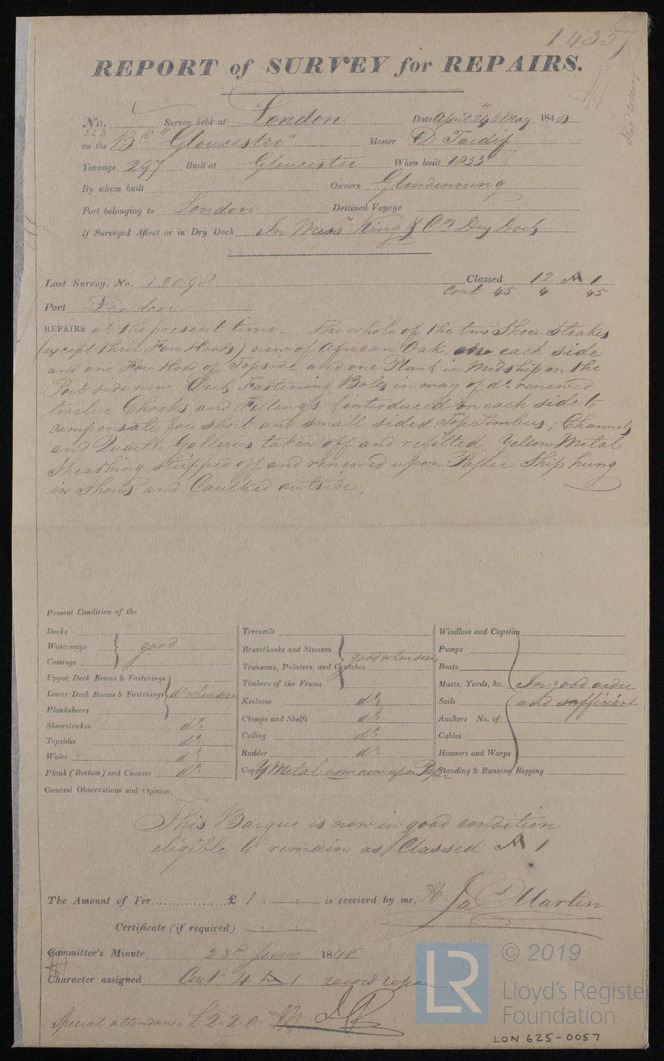 REPORT of SURVEY for REPAIRS.
No. 223 Survey held at London Date April 24th May 1848
on the Bk "Gloucester" Master D Tardif
Tonnage 297 Built at Gloucester When built 1833
By whom built Owners Glendinning
Port belonging to London Destined Voyage
If Surveyed Afloat or in Dry Dock In Messrs King & Co Dry Dock
Last Survey, No. 12098 Classed 12 A 1
Cont 45 4 45
Port London
REPAIRS at the present time. The whole of the two Sheer Strakes
(except their Fore Hoods) new of African Oak, on each side
and one Fore Hood of Topside and one Plank in Midship on the
Port side new Deck Fastening Bolts in way of do renewed
twelve Chocks and Futtings introduced on each side to
compensate for short and small sided Top Timbers, Channels
and Quarter Galleries taken off and refitted, Yellow Metal
Sheathing stripped off and renewed upon Paper Ship hung
in Shores and Caulked outside.
Present Condition of the
Decks
Waterways good
Comings
Upper Deck Beams & Fastenings
Lower Deck Beams & Fastenings do where seen
Planksheers
Sheerstrakes do
Topsides do
Wales do
Plank (Bottom) and Counter do
Treenails
Breasthooks and Stemson
good where seen
Transoms, Pointers, and Crutches
Timbers of the Frame
Keelsons do
Clamps and Shelfs do
Ceiling do
Rudder do
Copper Y Metal now new upon Paper
Windlass and Capstan
Pumps
Boats
Masts, Yards, &c. In good order
Sails and sufficient
Anchors No. of
Cables
Hawsers and Warps
Standing & Running Rigging
General Observations and Opinion,
This Barque is now in good condition
eligible to remain as Classed A 1
The Amount of Fee £ 1 : : is received by me, Jas Martin
Certificate (if required) : :
Committee's Minute 23rd June 1848
Character assigned Cont 4 A 1 record repairs
Special attendance £2.2.0
© 2019
LR Lloyd's Register
Foundation
LON 625-0057